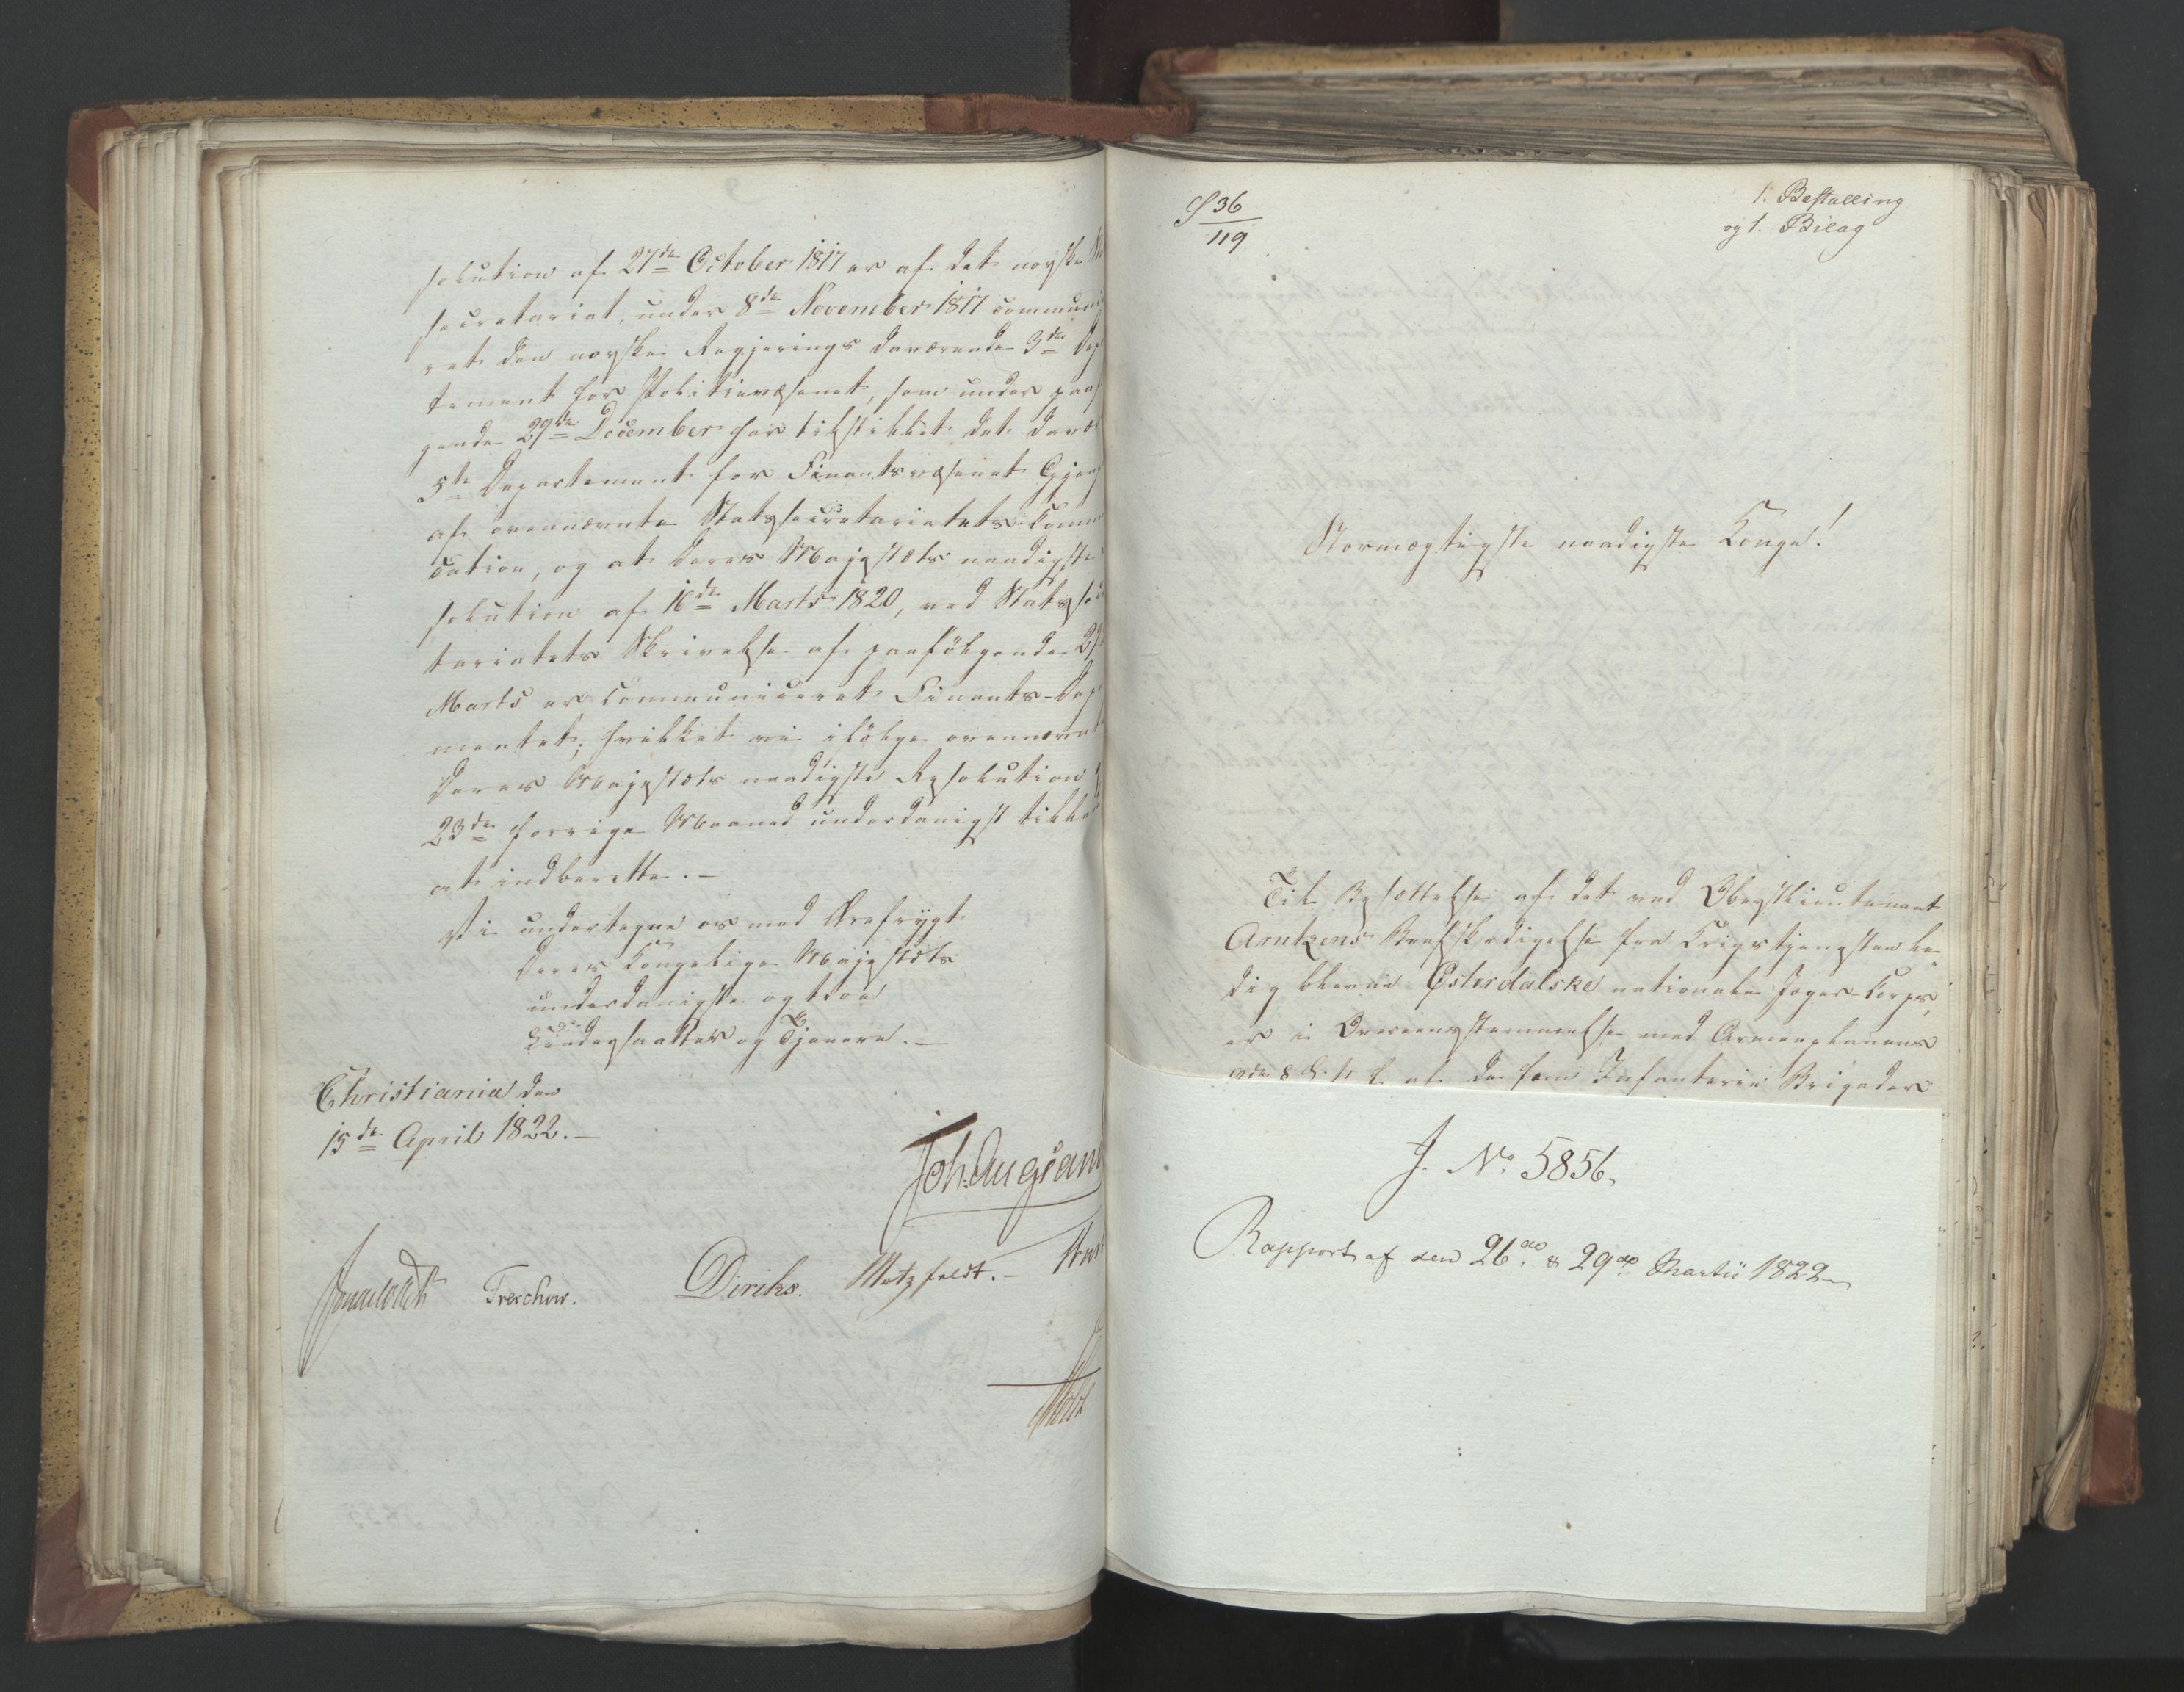 solution af 27de October 1817 er af det norske
secretariat, under 8de November 1817 commun
ret den norske Regjerings daværende 3die
tement for Politievæsenet, som under paaf
gende 29de December har tilstillet det davæ
5te Departement for Finantsvæsenet Gjen
af ovennævnte Statssecretariatets Comm
cation, og at Deres Majestæts naadigste
solution af 16de Marts 1820, ved Statsse
tariatets Skrivelse af paafølgende
Marts er communiceret Finants-Dep
mentet; hvilket vi ifølge ovennævn
Deres Majestæts naadigste Resolution
23de forrige Maaned underdanigst tillade
at indberette.-
Vi undertegne os med Ærefrygt
Deres Kongelige Majestæts
underdanigste og troe
Undersaatter og Tjenere.-
Christiania den
15de April 1822.-
Joh. Aug San
Sommerhielm Treschow. Diriks. Motzfeldt.-
Holst
S 36
119
1. Bestalling
og 1. Bilag
Stormægtigste naadigste Konge!
Til Besættelse af det ved Oberstlieutenant
Arntzens Beafskedigelse fra Krigstjenesten le-
dig blevne Østerdalske nationale Jæger-Corps,
er i Overeensstemmelse med Armeeplanens
af de fem Infanterie Brigader
J. No 5856.
Rapport af den 26de & 29de Martii 1822